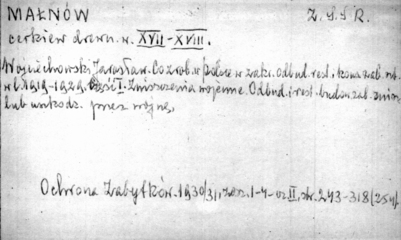 MAŁNÓW Z.S.S.R.
cerkiew drewn. w. XVII-XVIII.
Wojciechowski Jarosław. Co zrob. w Polsce w zakr. odbud. rest. i kons. zab.
w l. 1919-1929. Część I. Zniszczenia wojenne. Odbud. i rest. budow. zab. znisz.
lub uszkodz. przez wojnę,
Ochrona Zabytków. 1930/31, zesz. 1-4 cz II, str. 243-318 (254).